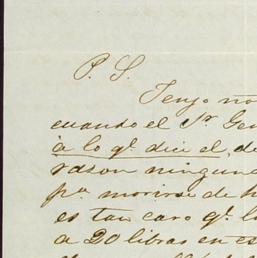 P. S.
Tengo no
cuando el Sr. Gen
a lo q.e dice el, de
razon ninguna
p.a morirse de h
es tan caro q.e l
a 20 libras en es